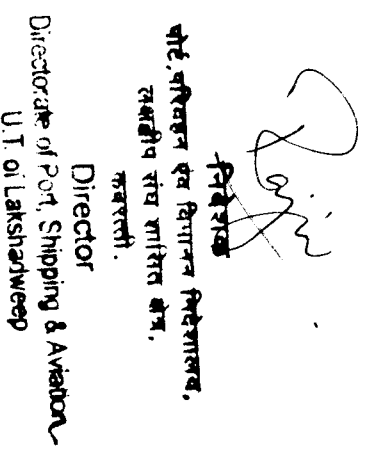 निदेशक
पोर्ट, परिवहन एंव विमानन निदेशालय,
लक्षद्वीप संघ शासित क्षेत्र,
कवरत्ती.
Director
Directorate of Port, Shipping & Aviation
U.T. of Lakshadweep